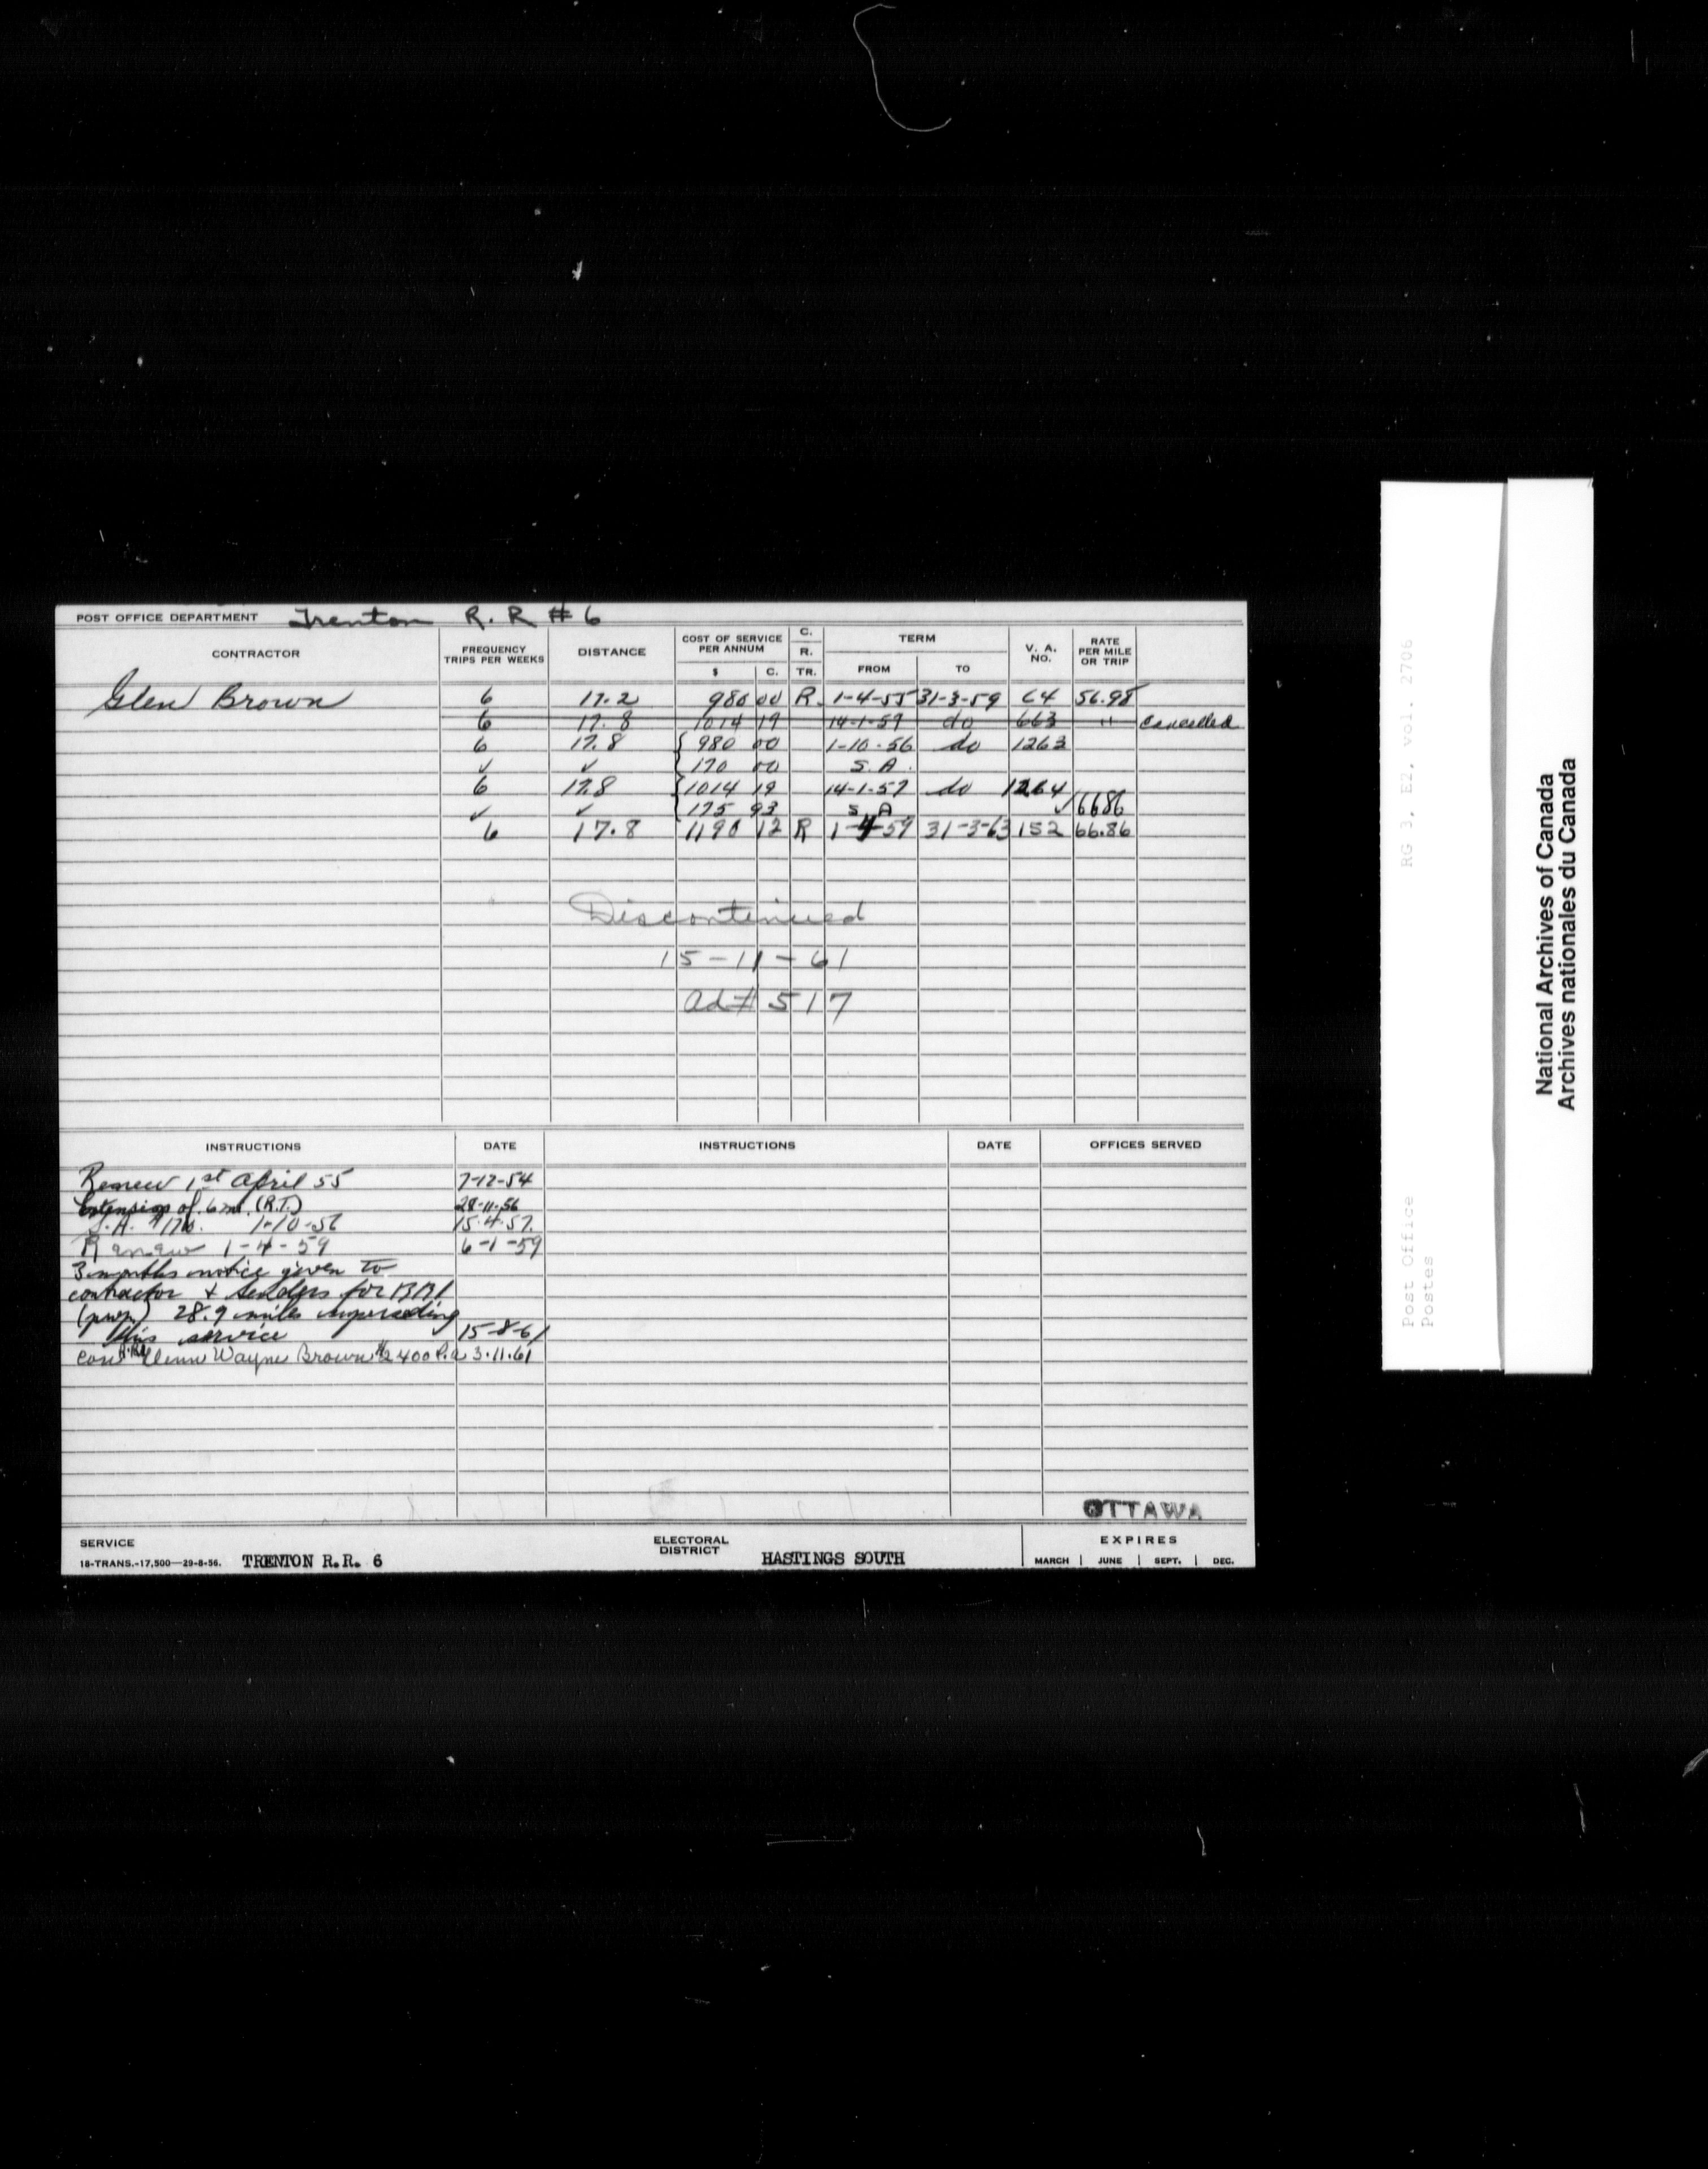 POST OFFICE DEPARTMENT Trenton R. R # 6
CONTRACTOR FREQUENCY TRIPS PER WEEKS DISTANCE COST OF SERVICE PER ANNUM $ C. C. R. TR. TERM FROM TO V. A. NO. RATE PER MILE OR TRIP
Glen Brown 6 17.2 980 00 R. 1-4-55 31-3-59 64 56.98
6 17.8 1014 19 14-1-57 do 663 " Cancelled
6 17.8 { 980 00 1-10-56 do 1263
✓ ✓ 170 00 S.A.
6 17.8 { 1014 19 14-1-57 do 1264
✓ ✓ 175 93 S.A ✓ 6686
6 17.8 1190 12 R 1-4-59 31-3-63 152 66.86
Discontinued
15-11-61
ad # 517
INSTRUCTIONS DATE INSTRUCTIONS DATE OFFICES SERVED
Renew 1st April 55 7-12-54
Extension of .6 mi. (R.T.) 28-11-56
S.A. $170. 1-10-56 15-4-57.
Renew 1-4-59 6-1-59
3 months notice given to
contractor & tenders for
28.9 miles superseding
this service 15-8-61
Glenn Wayne Brown $2400 P.a 3.11.61
OTTAWA
SERVICE
18-TRANS.-17,500—29-8-56. TRENTON R.R. 6
ELECTORAL DISTRICT HASTINGS SOUTH
EXPIRES
MARCH | JUNE | SEPT. | DEC.
RG 3, E2, vol. 2706
Post Office
Postes
National Archives of Canada
Archives nationales du Canada